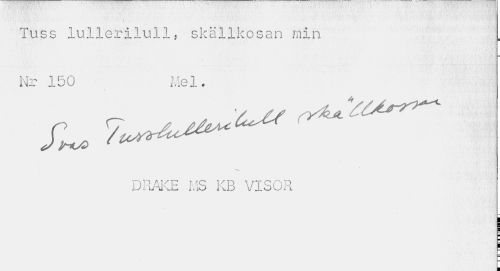 Tuss lullerilull, skällkosan min
Nr 150 Mel.
Svas Tusslullerilull skällkossan
DRAKE MS KB VISOR